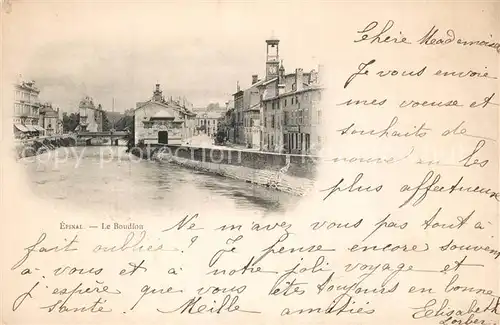 Chère Mademoise
Je vous envoie
mes voeuse et
souhaits de
nouvel an les
plus affectueux
ÉPINAL. — Le Boudiou
Ne m'avez vous pas tout à
fait oubliée? Je pense encore souvent
à vous et à notre joli voyage et
j'espère que vous êtes toujours en bonne
santé. Meille amitiés Elisabeth
Lorber